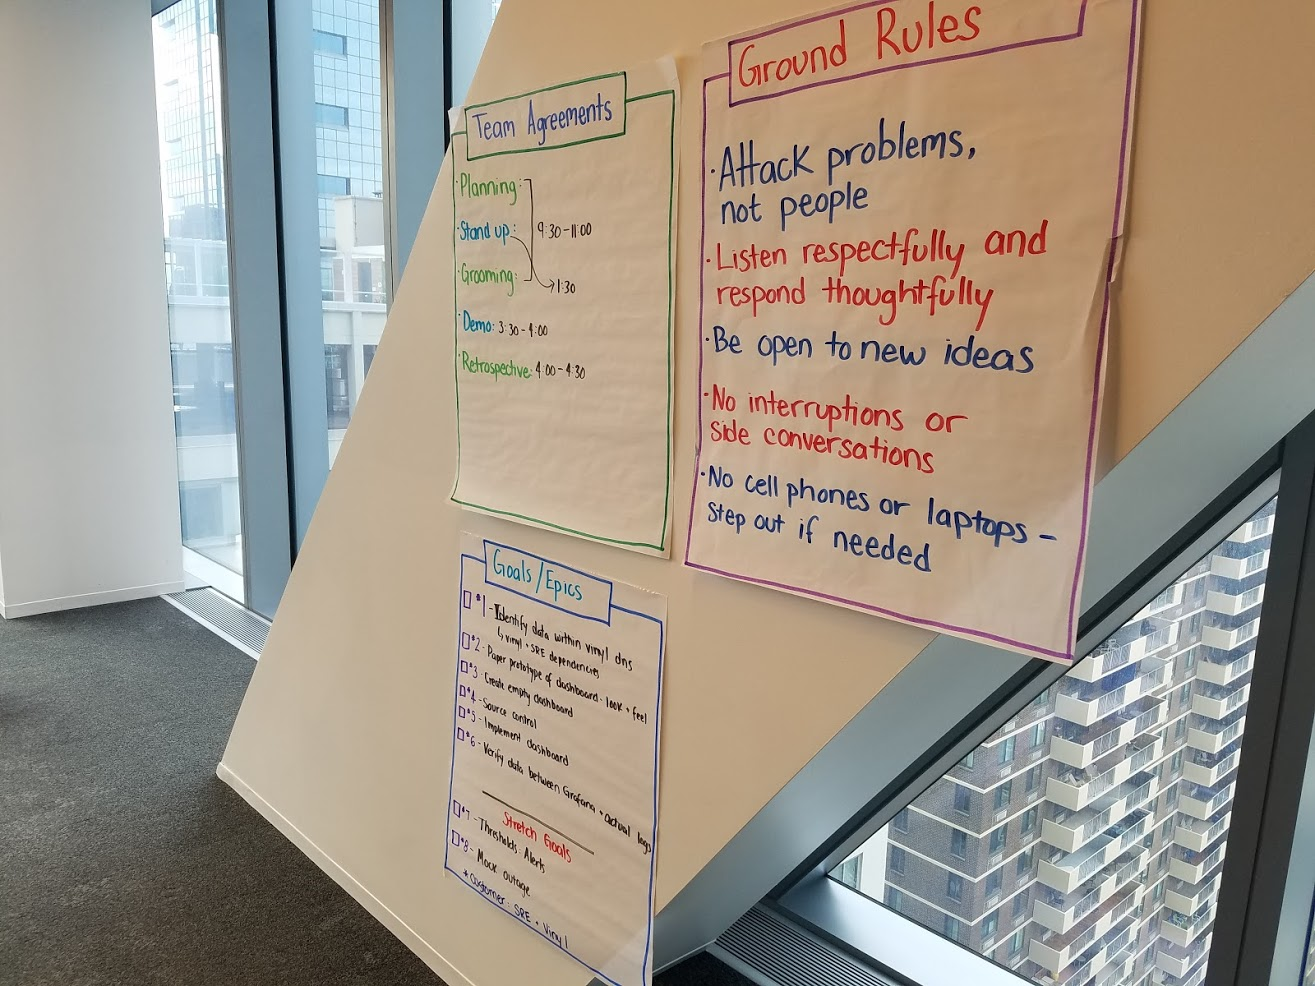 Team Agreements
· Planning:
· Stand up: 9:30-11:00
· Grooming: 1:30
· Demo: 3:30-4:00
· Retrospective: 4:00-4:30
Ground Rules
· Attack problems,
not people
· Listen respectfully and
respond thoughtfully
· Be open to new ideas
· No interruptions or
side conversations
· No cell phones or laptops -
step out if needed
Goals/Epics
#1 - Identify data within vinyl dns
↳ vinyl + SRE dependencies
#2 - Paper prototype of dashboard - look + feel
#3 - Create empty dashboard
#4 - Source control
#5 - Implement dashboard
#6 - Verify data between Grafana + actual logs
Stretch Goals
#7 - Thresholds: Alerts
#8 - Mock outage
* Customer: SRE + Vinyl